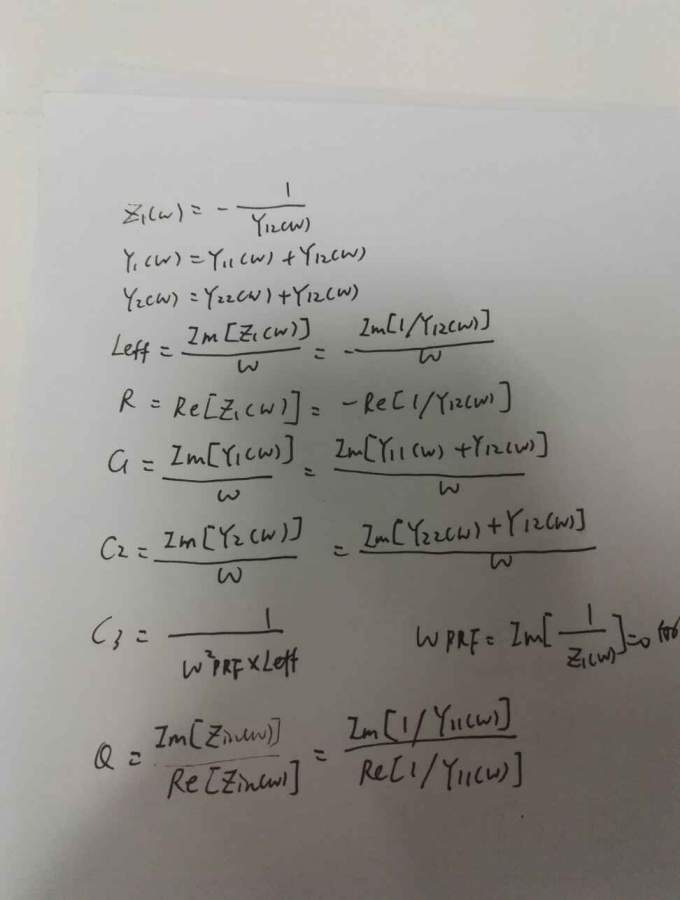 Z₁(ω) = - 1/Y₁₂(ω)
Y₁(ω) = Y₁₁(ω) + Y₁₂(ω)
Y₂(ω) = Y₂₂(ω) + Y₁₂(ω)
Leff = Im[Z₁(ω)]/ω = - Im[1/Y₁₂(ω)]/ω
R = Re[Z₁(ω)] = -Re[1/Y₁₂(ω)]
C₁ = Im[Y₁(ω)]/ω = Im[Y₁₁(ω) + Y₁₂(ω)]/ω
C₂ = Im[Y₂(ω)]/ω = Im[Y₂₂(ω) + Y₁₂(ω)]/ω
C₃ = 1/(ω²PRF × Leff) ωPRF = Im[1/Z₁(ω)]=0
Q = Im[Zin(ω)]/Re[Zin(ω)] = Im[1/Y₁₁(ω)]/Re[1/Y₁₁(ω)]